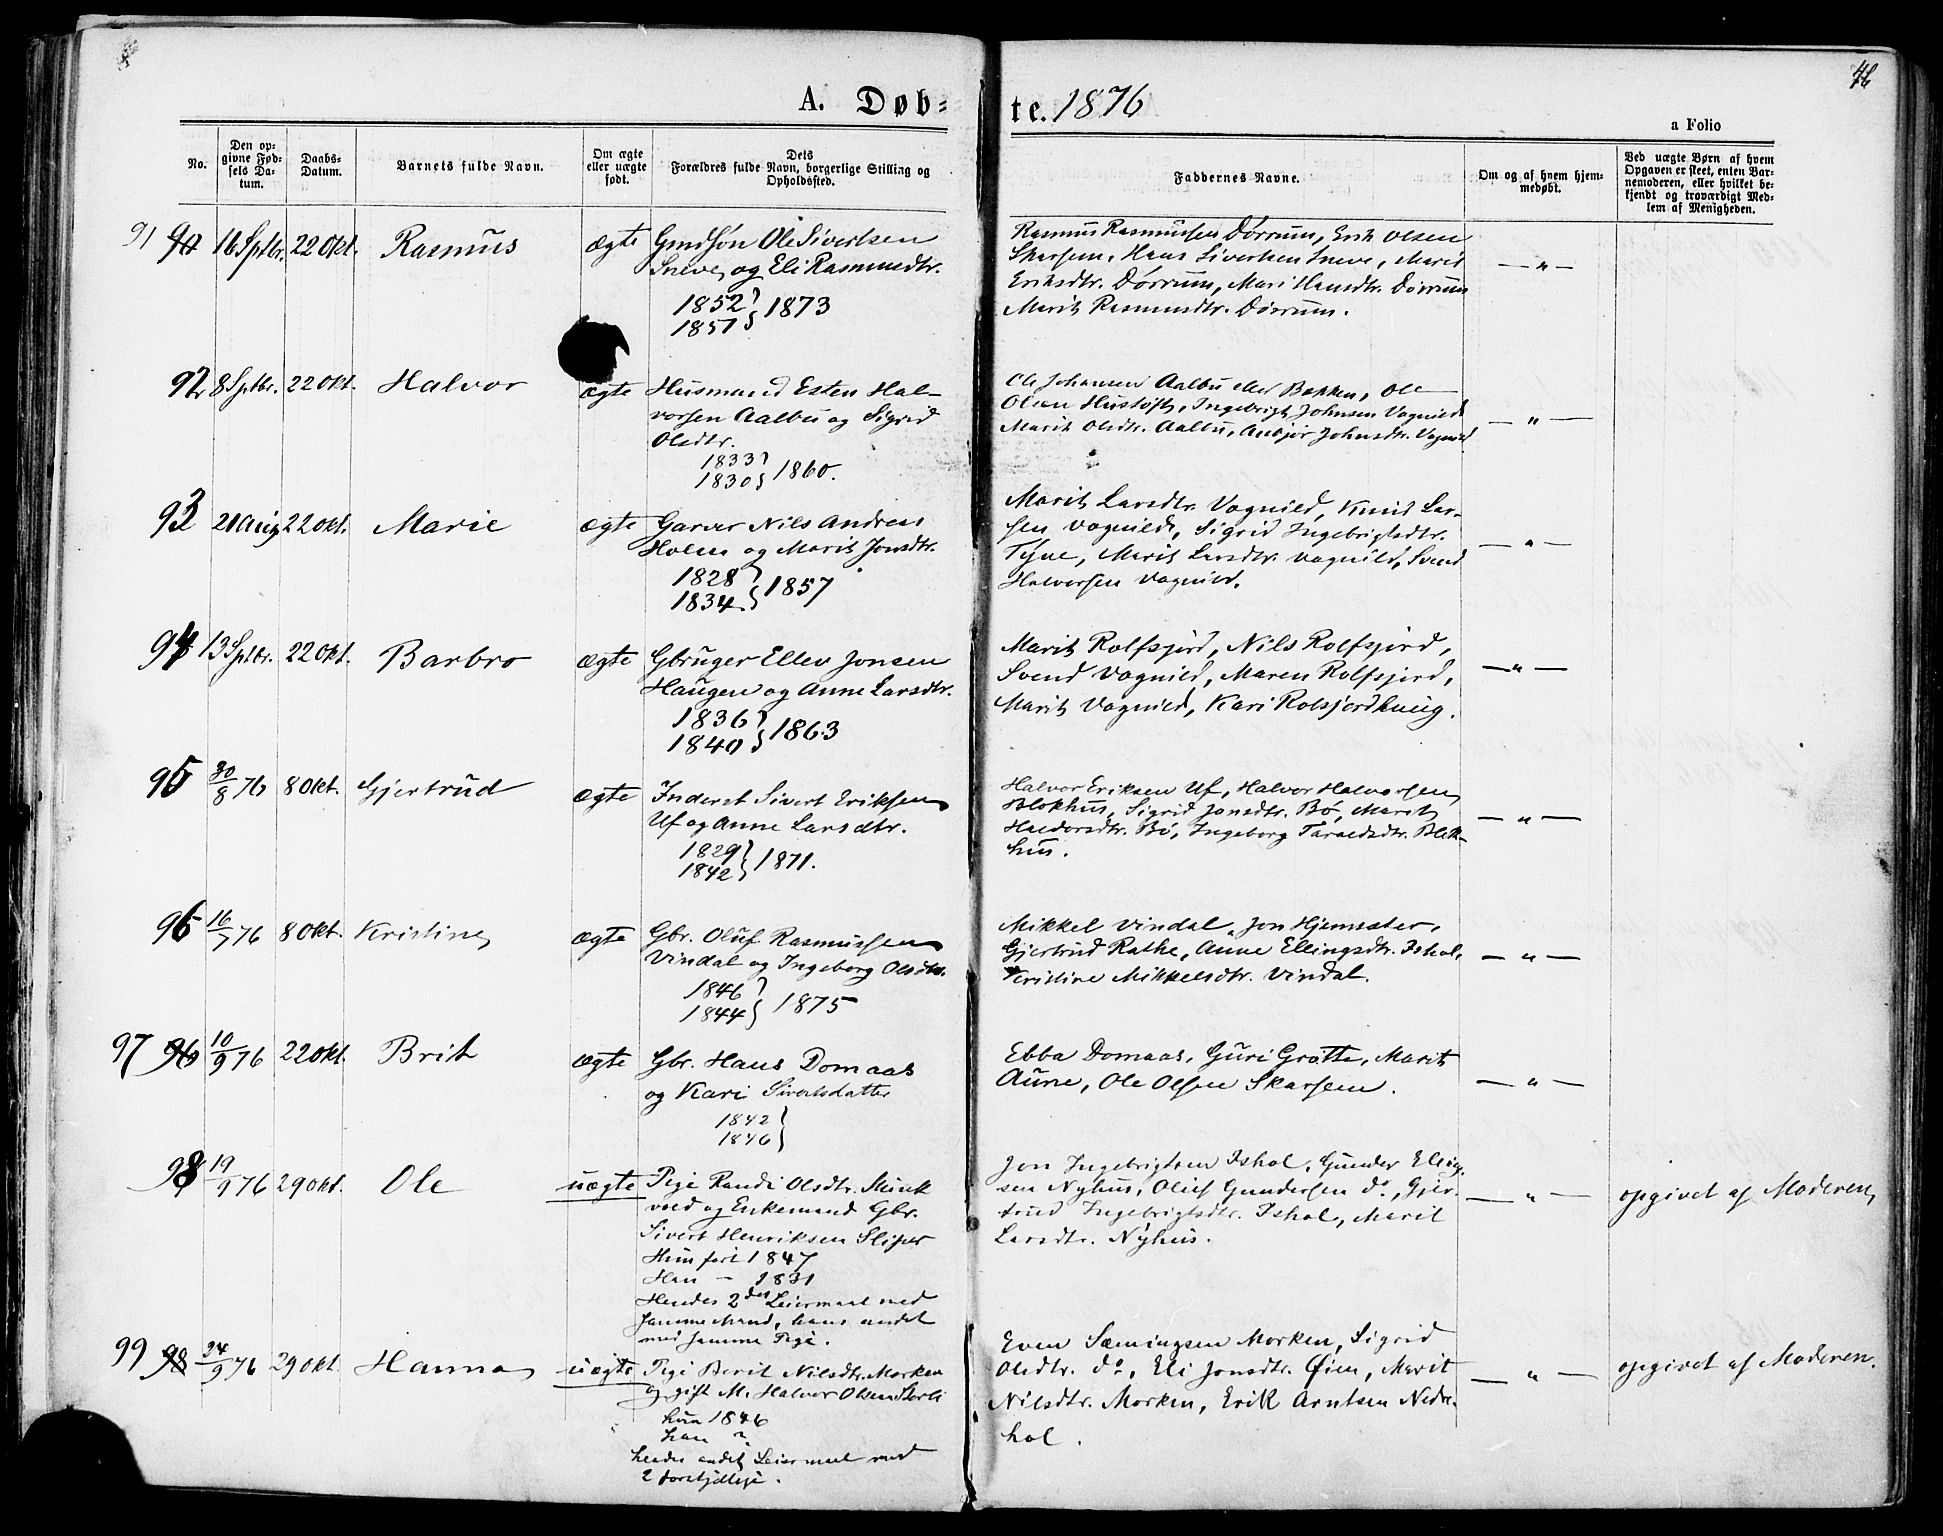 46
A. Døb-
te. 1876
a Folio
No.
Den op-
givne Fød-
sels Da-
tum.
Daabs-
Datum.
Barnets fulde Navn.
Om ægte
eller uægte
født.
Dets
Forældres fulde Navn, borgerlige Stilling og
Opholdssted.
Faddernes Navne.
Om og af hvem hjem-
medøbt.
Ved uægte Børn af hvem
Opgaven er skeet, enten Bar-
nemoderen, eller hvilket be-
kjendt og troværdigt Med-
lem af Menigheden.
91 90 16 Sptbr. 22 Okt. Rasmus ægte Gmdsøn Ole Sivertsen
Sneve, og Eli Rasmusdtr.
1852
1851 } 1873
Rasmus Rasmussen Dørrum, Erik Olsen
Skarsem, Hans Sivertsen Sneve, Marit
Eriksdtr. Dørrum, Mari Hansdtr. Dørrum
Marit Rasmusdtr. Dørrum.
— " —
92 8 Sptbr. 22 Okt. Halvor ægte Husmand Esten Hal-
vorsen Aalbu og Sigrid
Olsdtr.
1833
1830 } 1860.
Ole Johansen Aalbu eller Bakken, Ole
Olsen Hustoft, Ingebrigt Johnsen Vognild
Marit Olsdtr. Aalbu, Anbjør Johnsdtr. Vognild
— " —
93 21 Aug 22 Okt. Marie ægte Garver Nils Andreas
Holm og Marit Jonsdtr.
1828
1834 } 1857
Marit Larsdtr. Vognild, Knut Lar-
sen Vognild, Sigrid Ingebrigtsdtr.
Tyne, Marit Larsdtr. Vognild, Svend
Halvorsen Vognild.
— " —
94 13 Sptbr. 22 Okt. Barbro ægte Gbruger Ellev Jonsen
Haugen og Anne Larsdtr.
1836
1840 } 1863
Marit Rolfsjord, Nils Rolfsjord,
Svend Vognild, Maren Rolfsjord,
Marit Vognild, Kari Rolsjordhaug.
— " —
95 30/8 76 8 Okt. Gjertrud ægte Inderst Sivert Eriksen
Uf og Anne Larsdtr.
1829
1842 } 1871.
Halvor Eriksen Uf, Halvor Halvorsen
Blokhus, Sigrid Jonsdtr. Bø, Marit
Haldorsdtr. Bø, Ingeborg Taraldsdtr. Blok-
hus.
— " —
96 16/7 76 8 Okt. Kristine ægte Gbr. Oluf Rasmussen
Vindal og Ingeborg Olsdtr.
1846
1844 } 1875
Mikkel Vindal, Jon Hjemsæter,
Gjertrud Rathe, Anne Ellingsdtr. Ishol,
Kristine Mikkelsdtr. Vindal.
— " —
97 96 10/9 76 22 Okt. Brit ægte Gbr. Hans Domaas
og Kari Sivertsdatter
1842
1846 }
Ebba Domaas, Guri Grøtte, Marit
Aune, Ole Olsen Skarsem.
— " —
98 19/9 76 29 Okt. Ole uægte Pige Randi Olsdtr. Mink
vold og Enkemand Gbr.
Sivert Henriksen Sliper
Hun født 1847
Han — 1831
Hendes 2det Leiermaal med
samme Mand, hans andet
med samme Pige.
Jon Ingebrigtsen Ishol, Gunder Elling-
sen Nyhus, Oluf Gundersen do, Gjer-
trud Ingebrigtsdtr. Ishol, Marit
Larsdtr. Nyhus.
— " — opgivet af Moderen
99 98 24/9 76 29 Okt. Hanna uægte Pige Berit Nilsdtr. Morken
og gift M. Halvor Olsen
hun 1846
han ?
hendes andet Leiermaal med
2 forskjellige.
Even Sæmingsen Morken, Sigrid
Olsdtr. do, Eli Jonsdtr. Øien, Marit
Nilsdtr. Morken, Erik Arntsen Nedre-
hol.
— " — opgivet af Moderen.